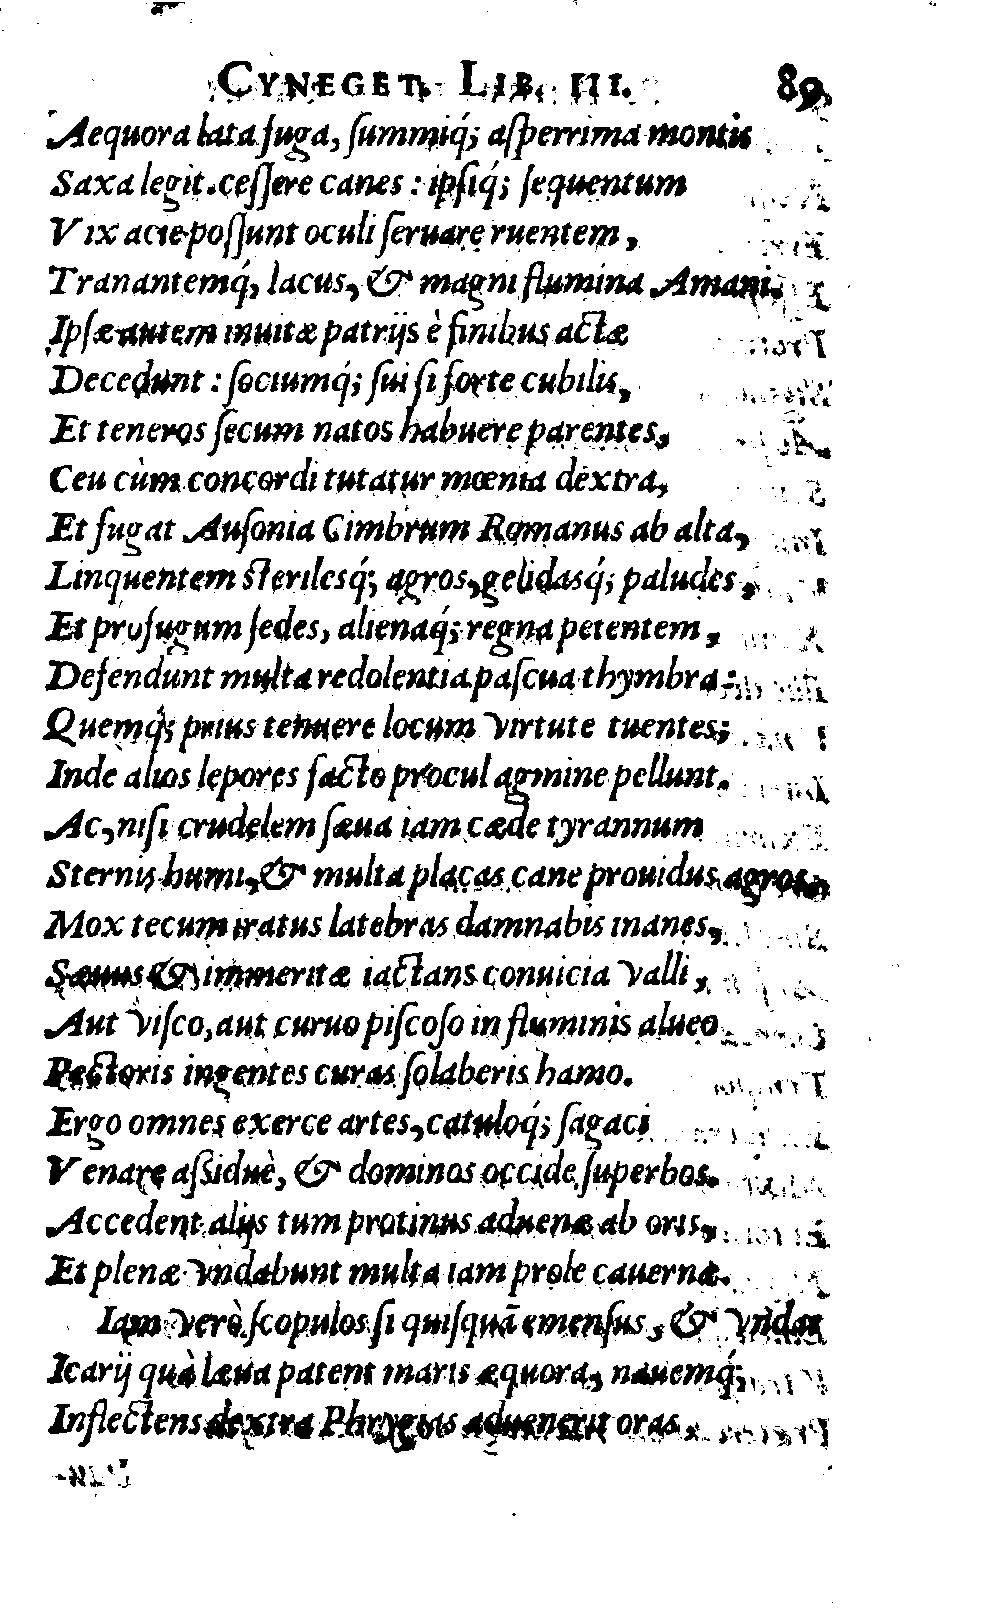 CYNEGET. LIB. III. 89
Aequora lata fuga, summiq́; asperrima montis
Saxa legit. cessere canes : ipsiq́; sequentum
Vix acie possunt oculi seruare ruentem,
Tranantemq́, lacus, & magni flumina Amani.
Ipsæ autem inuitæ patrijs è finibus actæ
Decedunt : sociumq́; sui si forte cubilis,
Et teneros secum natos habuere parentes,
Ceu cùm concordi tutatur mœnia dextra,
Et fugat Ausonia Cimbrum Romanus ab alta,
Linquentem sterilesq́; agros, gelidasq́; paludes,
Et profugum sedes, alienaq́; regna petentem,
Defendunt multa redolentia pascua thymbra:
Quemq́; prius tenuere locum virtute tuentes;
Inde alios lepores facto procul agmine pellunt.
Ac, nisi crudelem sæua iam cæde tyrannum
Sternis humi, & multa placas cane prouidus agros,
Mox tecum iratus latebras damnabis inanes,
Sæuus & immeritæ iactans conuicia valli,
Aut visco, aut curuo piscoso in fluminis alueo
Pectoris ingentes curas solaberis hamo.
Ergo omnes exerce artes, catuloq́; sagaci
Venare assiduè, & dominos occide superbos.
Accedent alijs tum protinus aduenæ ab oris,
Et plenæ vndabunt multa iam prole cauernæ.
Iam verò scopulos si quisquã emensus, & vndas
Icarij quà læua patent maris æquora, nauemq́;
Inflectens dextra Phrygias aduenerit oras,